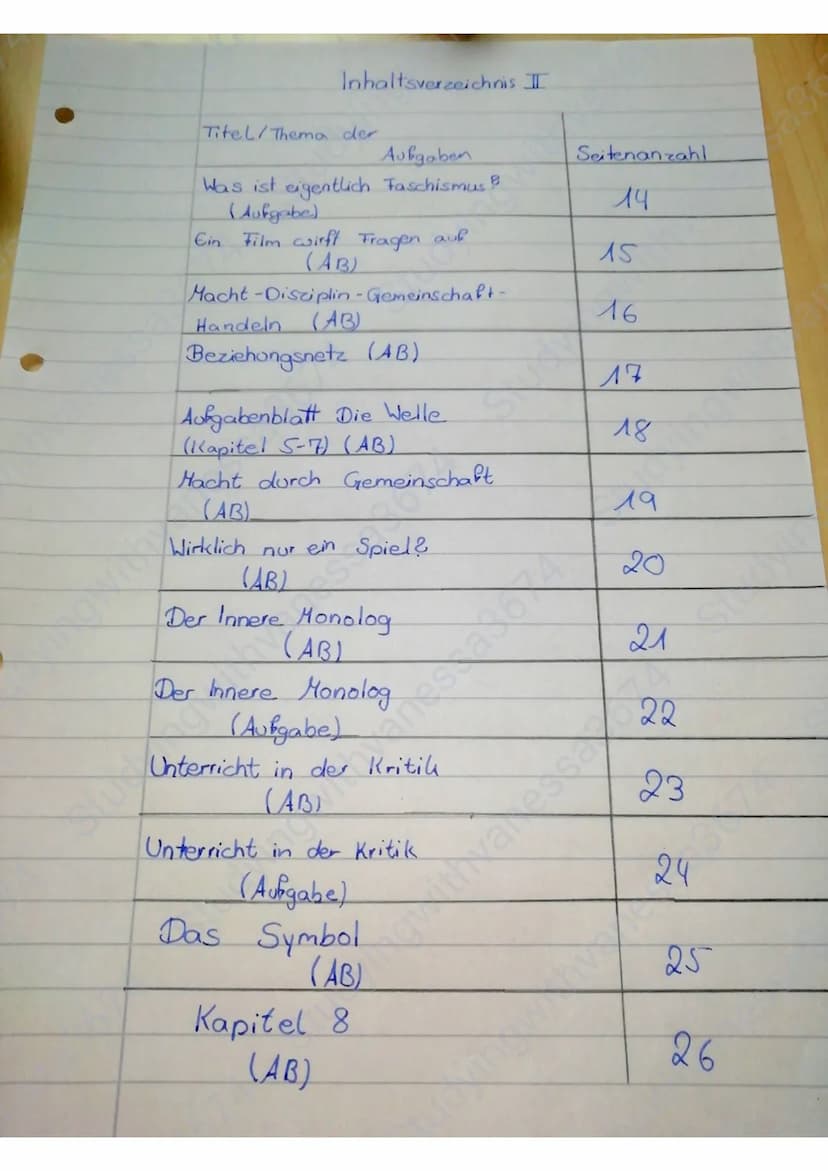 Inhaltsverzeichnis II
Titel/Thema der
Aufgaben
Seitenanzahl
Was ist eigentlich Faschismus?
(Aufgabe)
14
Ein Film wirft Fragen auf
(AB)
15
Macht-Disziplin-Gemeinschaft-
Handeln (AB)
16
Beziehungsnetz (AB)
17
Aufgabenblatt Die Welle
(Kapitel 5-7) (AB)
18
Macht durch Gemeinschaft
(AB)
19
Wirklich nur ein Spiel?
(AB)
20
Der Innere Monolog
(AB)
21
Der Innere Monolog
(Aufgabe)
22
Unterricht in der Kritik
(AB)
23
Unterricht in der Kritik
(Aufgabe)
24
Das Symbol
(AB)
25
Kapitel 8
(AB)
26
Studyingwithvanessa3674